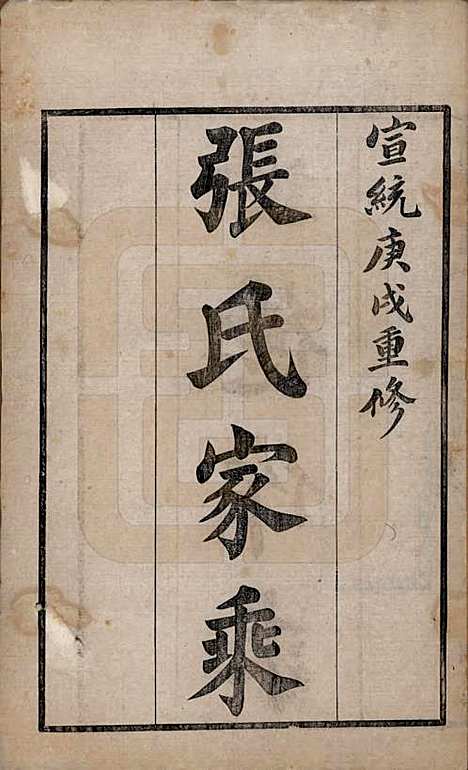 宣統庚戌重修
張氏家乘